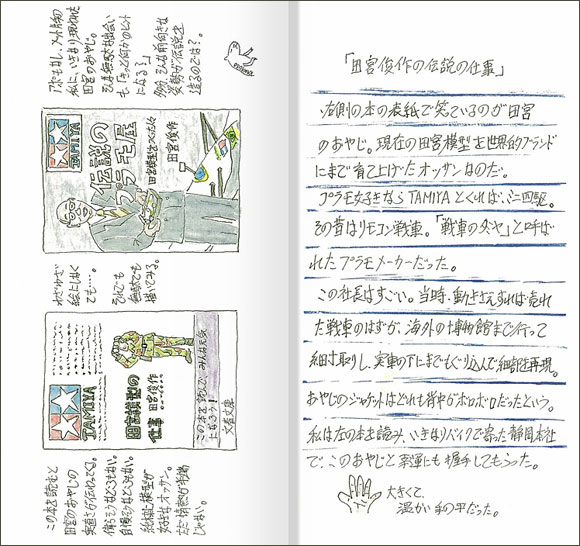 「田宮俊作の伝説の仕事」
右側の本の表紙で笑っているのが田宮
のおやじ。現在の田宮模型を世界的ブランド
にまで育て上げたオッサンなのだ。
プラモ好きならTAMIYAとくれば、ミニ四駆。
その昔はリモコン戦車。「戦車のタミヤ」と呼ば
れたプラモメーカーだった。
この社長はすごい。当時、動きさえすれば売れ
た戦車のはずが、海外の博物館まで行って
細寸取りし、実車の下にまでもぐり込んで細部を再現。
おやじのジャケットはどれも背中がボロボロだったという。
私は左の本を読み、いきなりバイクで寄った静岡本社
で、このおやじと幸運にも握手してもらった。
大きくて、
温かい手の平だった。
この本を読むと
田宮のおやじの
実直さが伝わってくる。
純粋に模型が
好きなオッサン。
ただ情熱が半端
じゃない。
TAMIYA
田宮模型の
仕事 田宮俊作
文春文庫
それでも
無駄でも
描いてみる。
TAMIYA
伝説の
プラモ屋
田宮模型をつくった人々
田宮俊作
アポもなし、メット片手の
私に、いきなり現れた
田宮のおやじ。
そんな無駄な出会い
も「きっと何かのヒント
になる?」
多分、そんな前向きな
姿勢が伝説を
造るのでは?。